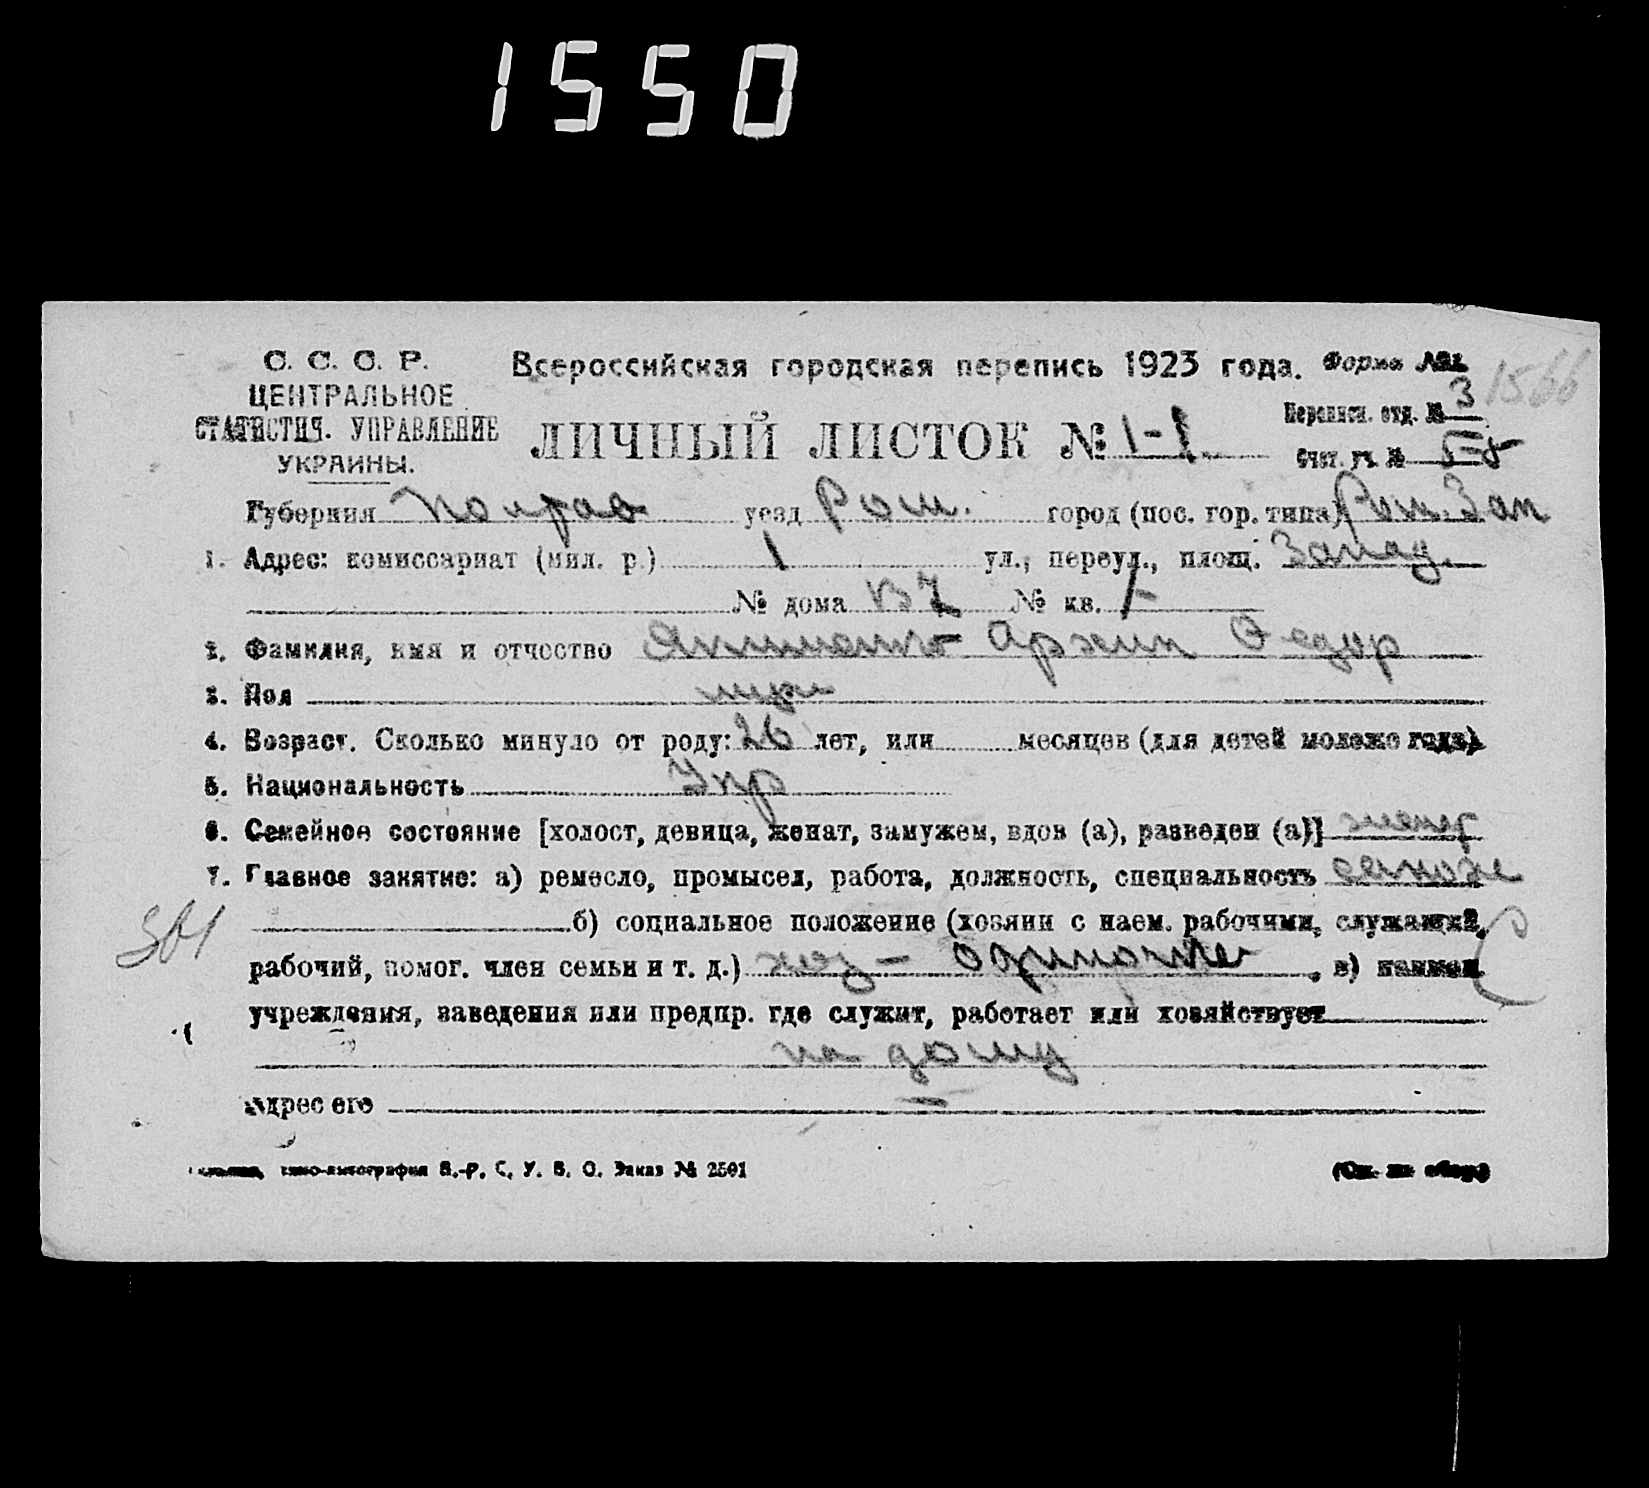 1550
С. С. С. Р.
ЦЕНТРАЛЬНОЕ
СТАТИСТИЧ. УПРАВЛЕНИЕ
УКРАИНЫ.
Всероссийская городская перепись 1923 года. Форма №1
1566
ЛИЧНЫЙ ЛИСТОК № 1-1.
Переписн. отд. № 3
Счет. уч. №
Губерния Полтав уезд Ром. город (пос. гор. типа) Ром. Зап
1. Адрес: комиссариат (мил. р.) 1 ул., переул., площ. Запад.
№ дома № кв.
2. Фамилия, имя и отчество Архип Федор
3. Пол муж
4. Возраст. Сколько минуло от роду: 26 лет, или месяцев (для детей моложе года).
5. Национальность Укр
6. Семейное состояние [холост, девица, женат, замужем, вдов (а), разведен (а)] женат
7. Главное занятие: а) ремесло, промысел, работа, должность, специальность сапожн
б) социальное положение (хозяин с наем. рабочими, служащий,
рабочий, помог. член семьи и т. д.) хоз - одиночка, в) наимен.
учреждения, заведения или предпр. где служит, работает или хозяйствует
на дому
Адрес его —
литография В.-Р. С. У. В. О. Заказ № 2501
(См. на обор.)